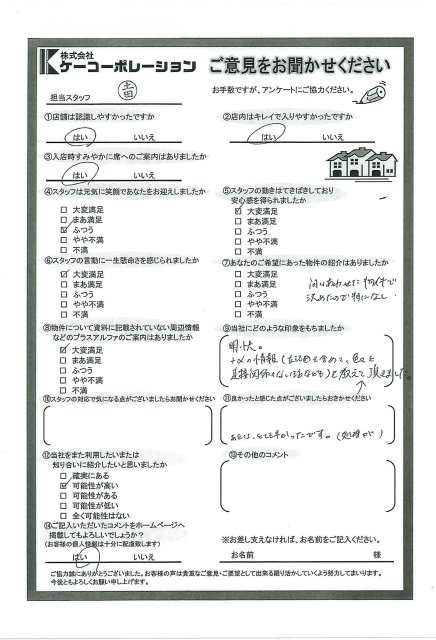 株式会社
ケーコーポレーション
ご意見をお聞かせください
担当スタッフ
お手数ですが、アンケートにご協力ください。
①店舗は認識しやすかったですか
はい いいえ
②店内はキレイで入りやすかったですか
はい いいえ
③入店時すみやかに席へのご案内はありましたか
はい いいえ
④スタッフは元気に笑顔であなたをお迎えしましたか
☐ 大変満足
☐ まあ満足
☑ ふつう
☐ やや不満
☐ 不満
⑤スタッフの動きはてきぱきしており
安心感を得られましたか
☑ 大変満足
☐ まあ満足
☐ ふつう
☐ やや不満
☐ 不満
⑥スタッフの言動に一生懸命さを感じられましたか
☑ 大変満足
☐ まあ満足
☐ ふつう
☐ やや不満
☐ 不満
⑦あなたのご希望にあった物件の紹介はありましたか
☐ 大変満足
☐ まあ満足
☐ ふつう
☐ やや不満
☐ 不満
問い合わせた物件で
決めたので特になし
⑧物件について資料に記載されていない周辺情報
などのプラスアルファのご案内はありましたか
☑ 大変満足
☐ まあ満足
☐ ふつう
☐ やや不満
☐ 不満
⑨当社にどのような印象をもちましたか
明快。
を教えて頂きました。
⑩スタッフの対応で気になる点がございましたらお聞かせください
⑪良かったと感じた点がございましたらおきかせください
⑫当社をまた利用したいまたは
知り合いに紹介したいと思いましたか
☐ 確実にある
☑ 可能性が高い
☐ 可能性がある
☐ 可能性が低い
☐ 全く可能性はない
⑬その他のコメント
⑭ご記入いただいたコメントをホームページへ
掲載してもよろしいでしょうか?
(お客様の個人情報は十分に配慮致します)
はい いいえ
※お差し支えなければ、お名前をご記入ください。
お名前 様
ご協力誠にありがとうございました。お客様の声は貴重なご意見・ご要望として出来る限り活かしていくよう努力してまいります。
今後ともよろしくお願い申し上げます。